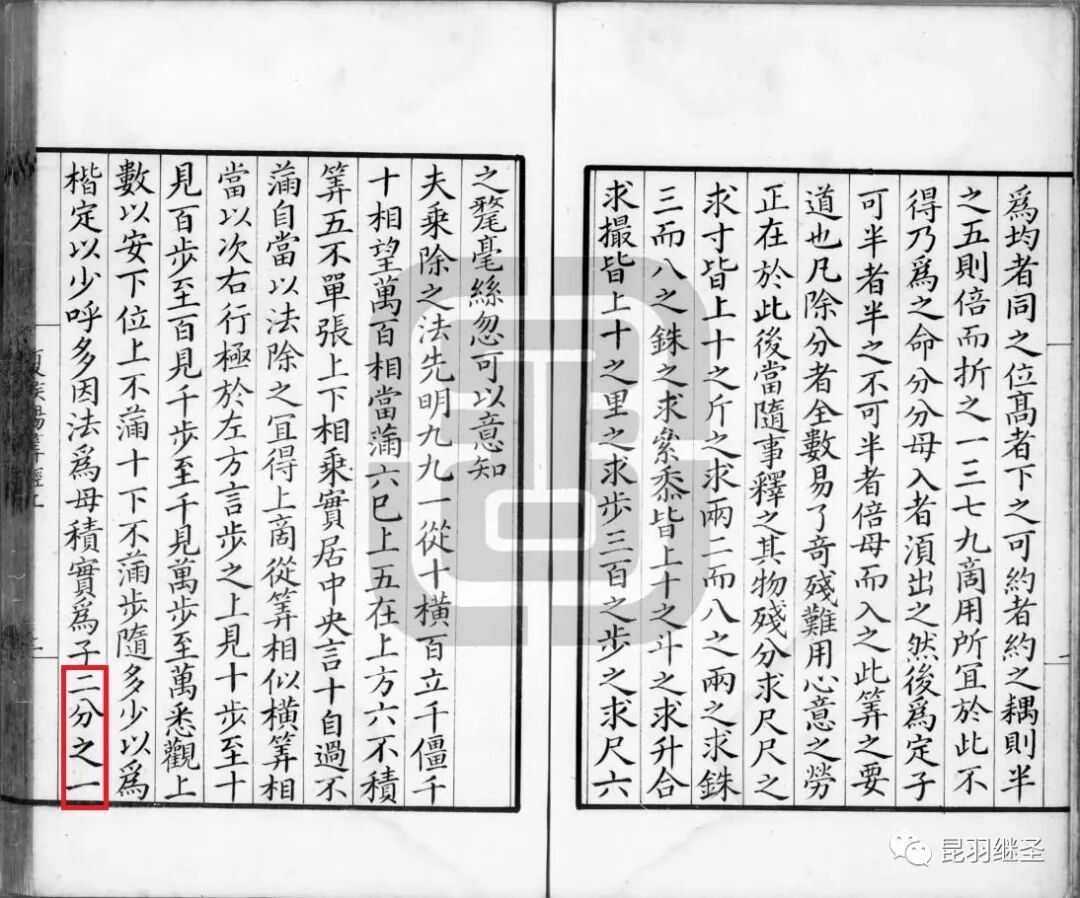 爲均者同之位髙者下之可約者約之耦則半
之五則倍而折之一三七九啇用所宜於此不
得乃爲之命分分母入者湏出之然後爲定子
可半者半之不可半者倍母而入之此筭之要
道也凡除分者全數易了竒殘難用心意之勞
正在於此後當隨事釋之其物殘分求尺尺之
求寸皆上十之斤之求兩二而八之兩之求銖
三而八之銖之求絫黍皆上十之斗之求升合
求撮皆上十之里之求步三百之步之求尺六
之氂毫絲忽可以意知
夫乘除之法先明九九一從十橫百立千僵千
十相望萬百相當滿六巳上五在上方六不積
筭五不單張上下相乘實居中央言十自過不
滿自當以法除之冝得上啇從筭相似橫筭相
當以次右行極於左方言步之上見十步至十
見百步至百見千步至千見萬步至萬悉觀上
數以安下位上不滿十下不滿步隨多少以爲
楷定以少呼多因法爲母積實爲子二分之一
夏侯陽筭經上
昆羽继圣